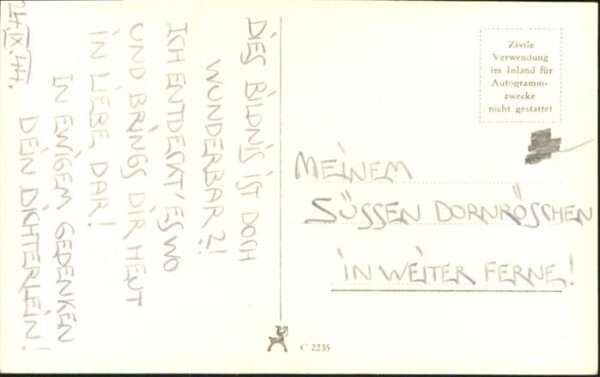 DIES BILDNIS IST DOCH
WUNDERBAR?!
ICH ENTDECKT' ES WO
UND BRING'S DIR HEUT
IN LIEBE DAR!
IN EWIGEM GEDENKEN
DEIN DICHTERLEIN!
24.IX.44.
Zivile
Verwendung
im Inland für
Autogramm-
zwecke
nicht gestattet
MEINEM
SÜSSEN DORNRÖSCHEN
IN WEITER FERNE!
C 2235